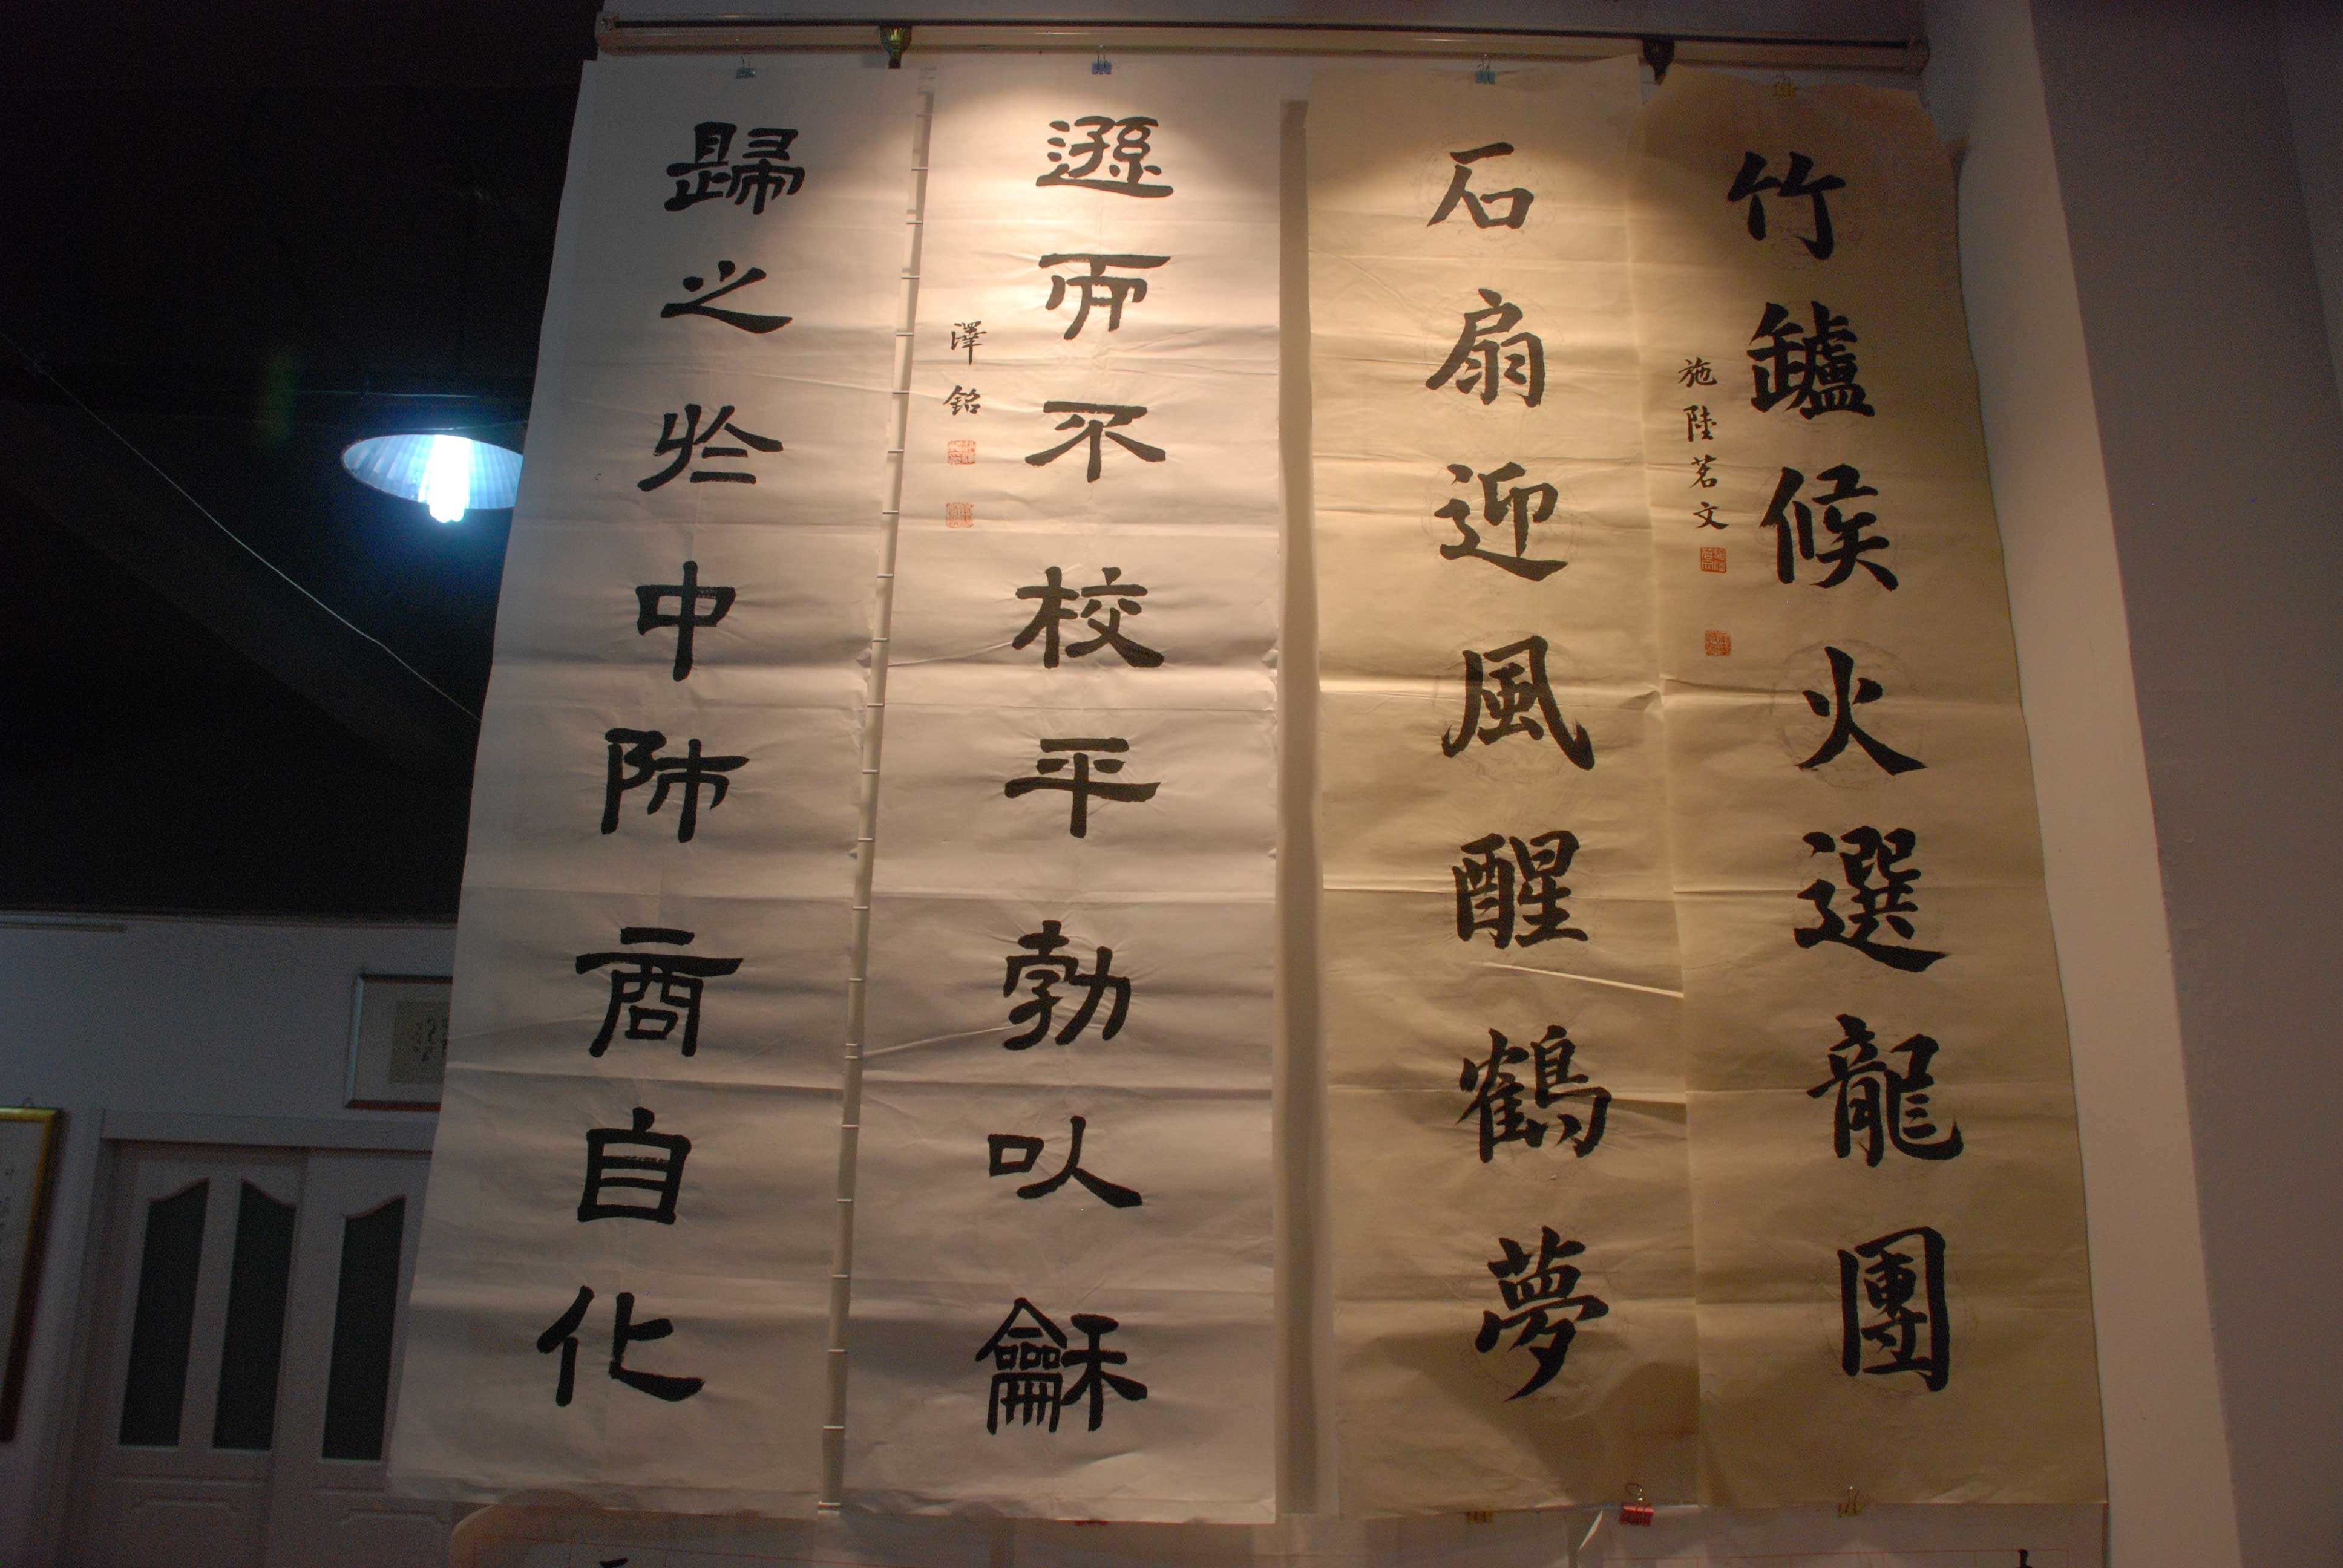 竹罏候火選龍團
施陸茗文
石扇迎風醒鶴夢
遜而不校平勃以龢
澤銘
歸之於中師商自化